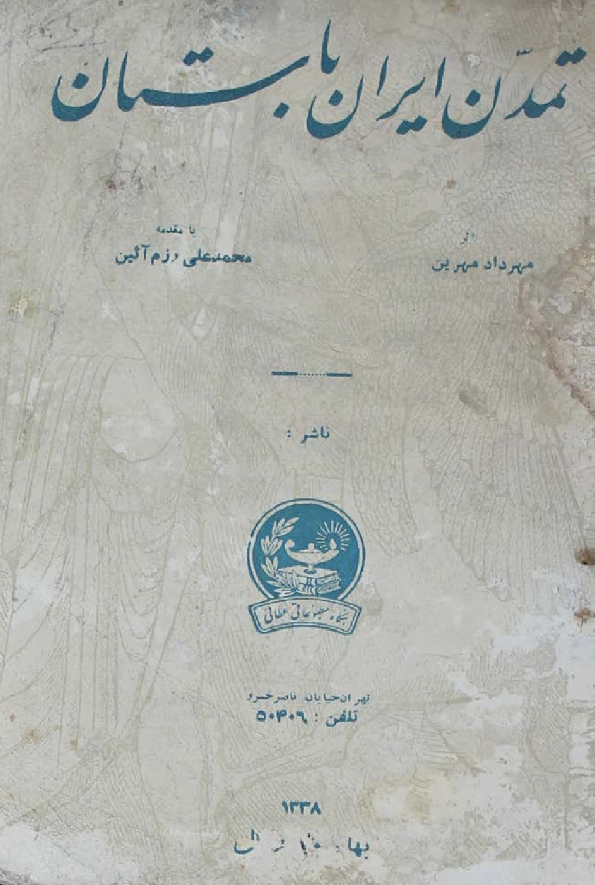 تمدّن ایران باستان
اثر
مهرداد مهرین
با مقدمه
محمدعلی رزم آئین
ناشر :
بنگاه مطبوعاتی عطائی
تهران خیابان ناصرخسرو
تلفن : ۵۰۴۰۶
۱۳۳۸